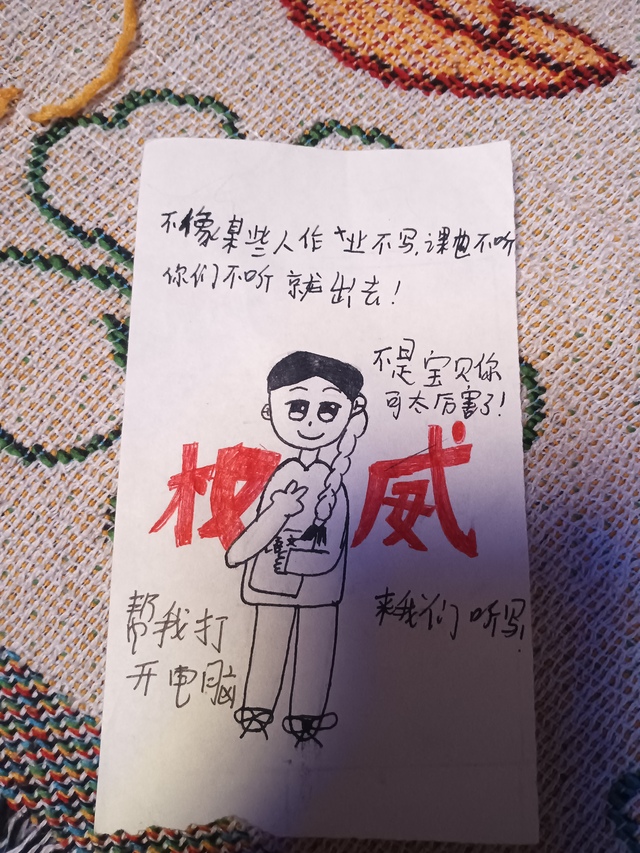 不像某些人作业不写,课也不听
你们不听就出去!
不是宝贝你
可太厉害了!
权威
帮我打
开电脑
来我们听写!